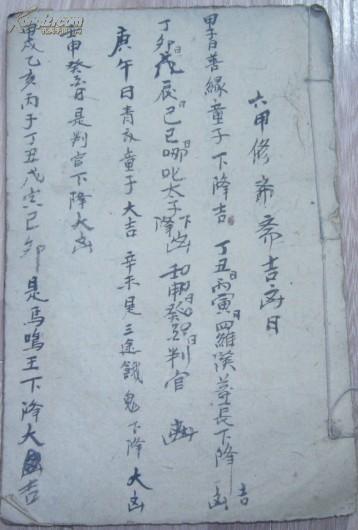 六甲修齋斋吉凶日
甲子日善緣童子下降吉 丁丑日丙寅日四羅漢尊長下降凶吉
丁卯日戊辰日己巳哪叱太子下降凶 壬申日癸酉日判官 凶
庚午日青衣童子大吉 辛未是三途餓鬼下降大凶
壬申癸酉日是判官下降大凶
甲戌乙亥丙子丁丑戊寅己卯是馬鳴王下降大吉